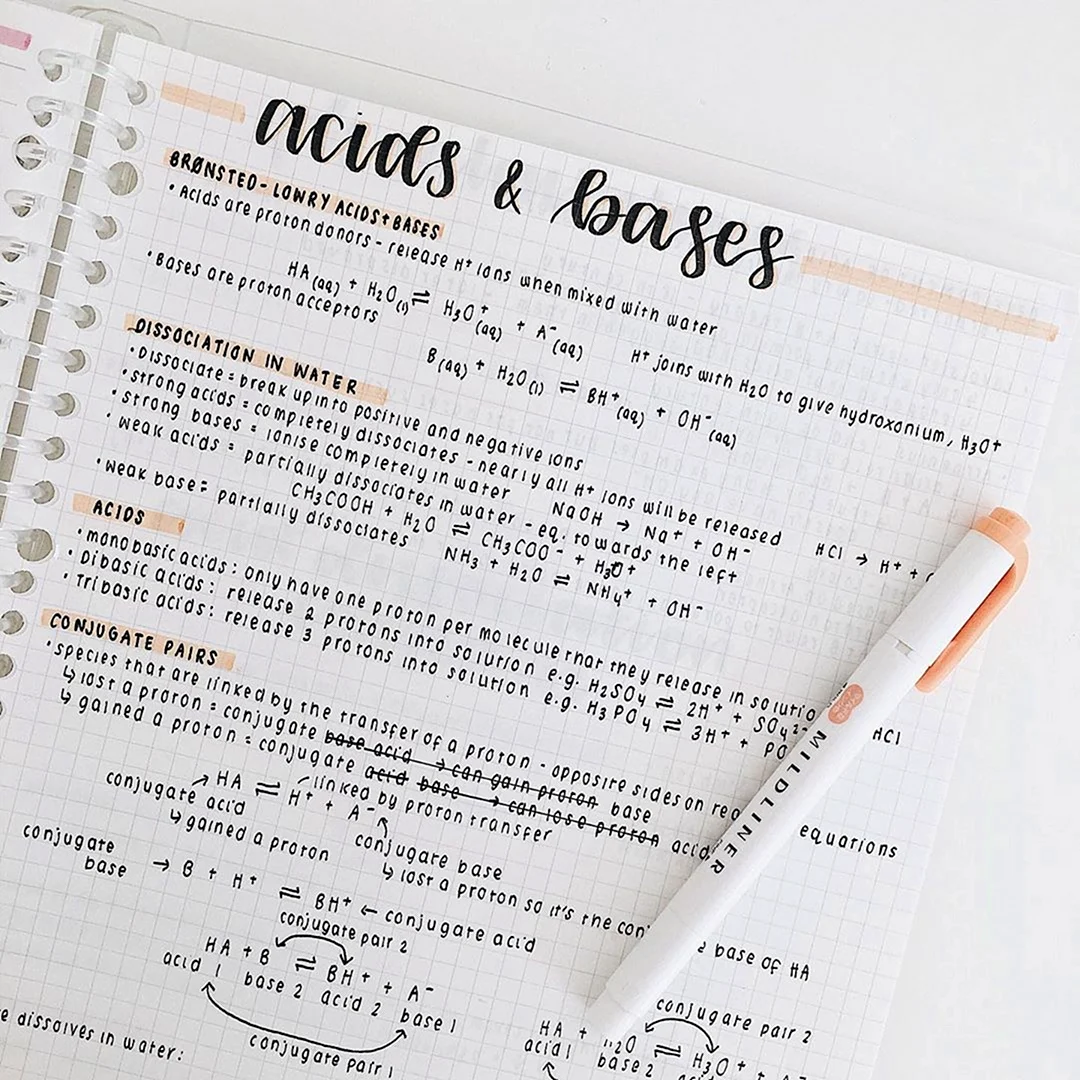 acids & bases
BRØNSTED-LOWRY ACIDS + BASES
• Acids are proton donors - release H⁺ ions when mixed with water
HA(aq) + H₂O(l) ⇌ H₃O⁺(aq) + A⁻(aq) H⁺ joins with H₂O to give hydroxonium, H₃O⁺
• Bases are proton acceptors
B(aq) + H₂O(l) ⇌ BH⁺(aq) + OH⁻(aq)
DISSOCIATION IN WATER
• Dissociate = break up into positive and negative ions
• strong acids = completely dissociates - nearly all H⁺ ions will be released HCl → H⁺ +
• strong bases = ionise completely in water NaOH → Na⁺ + OH⁻
• weak acids = partially dissociates in water - eq. towards the left
CH₃COOH + H₂O ⇌ CH₃COO⁻ + H₃O⁺
• weak base = partially dissociates NH₃ + H₂O ⇌ NH₄⁺ + OH⁻
ACIDS
• monobasic acids: only have one proton per molecule that they release in solutio HCl
• Dibasic acids: release 2 protons into solution e.g. H₂SO₄ ⇌ 2H⁺ + SO₄²⁻
• Tribasic acids: release 3 protons into solution e.g. H₃PO₄ ⇌ 3H⁺ + PO
CONJUGATE PAIRS
• species that are linked by the transfer of a proton - opposite sides on rea equations
↳ lost a proton = conjugate base acid → can gain proton base
↳ gained a proton = conjugate acid base → can lose proton acid
HA ⇌ H⁺ + A⁻ linked by proton transfer
conjugate acid
↳ gained a proton
conjugate base
↳ lost a proton so it's the con base of HA
conjugate base → B + H⁺ ⇌ BH⁺ ← conjugate acid
conjugate pair 2
HA + B ⇌ BH⁺ + A⁻
acid 1 base 2 acid 2 base 1
conjugate pair 1
conjugate pair 2
HA + H₂O ⇌ H₃O⁺ +
acid 1 base 2
dissolves in water:
MILDLINER